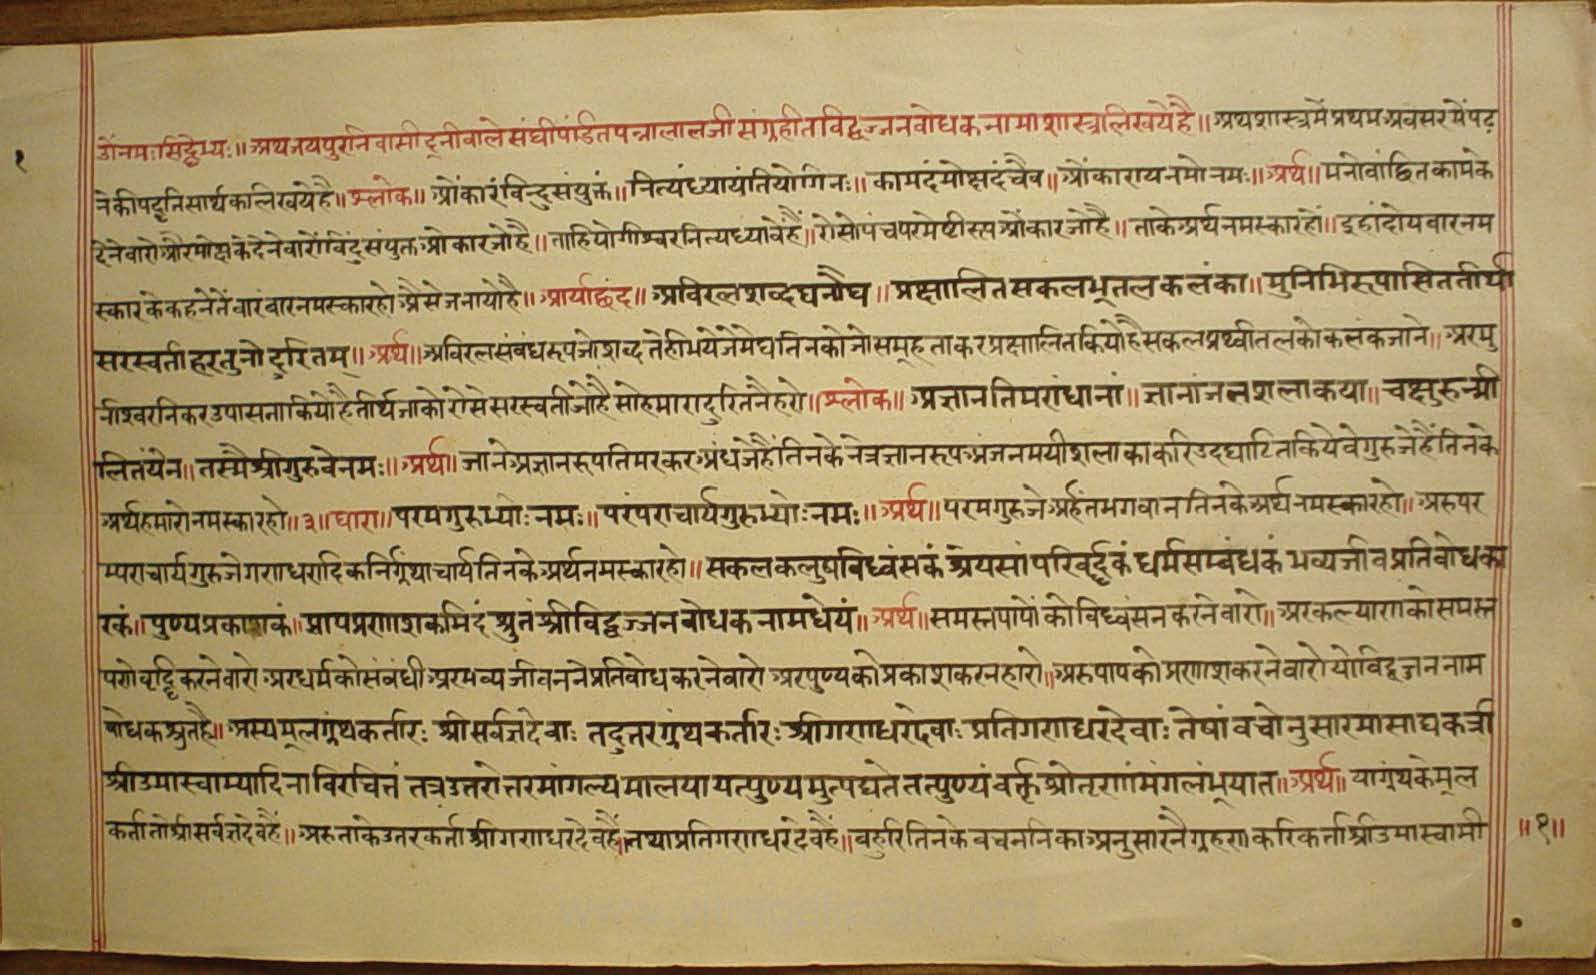 १
उोंनमःसिद्धेभ्यः॥अथजयपुरनिवासीदूनीवालेसंघीपंडितपन्नालालजीसंगृहीतविद्वज्जनबोधकनामाशास्त्रलिखयेहै॥अथशास्त्रमेंप्रथमअवसरमेंपढ
नेकीपद्धतिसार्थकलिखयेहै॥श्लोक॥ओंकारंविन्दुसंयुक्तं॥नित्यंध्यायंतियोगिनः॥कामदंमोक्षदंचैव॥ओंकारायनमोनमः॥अर्थ॥मनोवांछितकामके
देनेवारोऔरमोक्षकेदेनेवारोंविंदुसंयुक्तओंकारजोहै॥ताहियोगीश्वरनित्यध्यावेहैं॥ऐसोपंचपरमेष्टीरूपओंकारजोहै॥ताकेअर्थनमस्कारहों॥इहांदोयवारनम
स्कारकेकहनेतेंवारंवारनमस्कारहोऐसेजनायोहै॥आर्याछंद॥अविरलशब्दघनौघ॥प्रक्षालितसकलभूतलकलंका॥मुनिभिरूपासिततीर्था
सरस्वतीहरतुनोदुरितम्॥अर्थ॥अविरलसंबंधरूपजोशब्दतेहीभयेजेमेघतिनकोजोसमूहताकरप्रक्षालितकियोहैसकलप्रथ्वीतलकोकलंकजाने॥अरमु
नीश्वरनिकरउपासनाकियोहैतीर्थजाकोऐसेसरस्वतीजोहैसोहमारादुरितनैहरो॥श्लोक॥अज्ञानतिमरांधानां॥ज्ञानांजनशलाकया॥चक्षुरुन्मी
लितंयेन॥तस्मैश्रीगुरुवेनमः॥अर्थ॥जानेअज्ञानरूपतिमरकरअंधजेहैंतिनकेनेत्रज्ञानरूपअंजनमयीशलाकाकरिउदघाटितकियेवेगुरुजेहैंतिनके
अर्थहमारोनमस्कारहो॥३॥धारा॥परमगुरुभ्योःनमः॥परंपराचार्यगुरुभ्योःनमः॥अर्थ॥परमगुरुजेअर्हंतभगवानतिनकेअर्थनमस्कारहो॥अरुपर
म्पराचार्यगुरुजेगणधरादिकनिर्ग्रंथाचार्यतिनकेअर्थनमस्कारहो॥सकलकलुषविध्वंसकंश्रेयसांपरिवर्द्धकंधर्मसम्बंधकंभव्यजीवप्रतिबोधका
रकं॥पुण्यप्रकाशकं॥पापप्रणाशकमिदंश्रुतंश्रीविद्वज्जनबोधकनामधेयं॥अर्थ॥समस्तपापोंकोविध्वंसनकरनेवारो॥अरकल्याणकोसमस्त
पणेवृद्धिकरनेवारोअरधर्मकोसंबंधीअरभव्यजीवननेप्रतिबोधकरनेवारोअरपुण्यकोप्रकाशकरनहारो॥अरुपापकोप्रणाशकरनेवारोयोविद्वज्जननाम
बोधकश्रुतहै॥अस्यमूलग्रंथकर्तारःश्रीसर्वज्ञदेवाःतदुत्तरग्रंथकर्तारःश्रीगणधरदेवाःप्रतिगणधरदेवाःतेषांवचोनुसारमासाद्यकर्त्रा
श्रीउमास्वाम्यादिनाविरचितंतत्रउत्तरोत्तरमांगल्यमालयायत्पुण्यमुत्पद्यतेतत्पुण्यंवर्क्तृश्रोतृणांमंगलंभूयात॥अर्थ॥याग्रंथकेमूल
कर्तातोश्रीसर्वज्ञदेवहैं॥अरुताकेउत्तरकर्ताश्रीगणधरदेवहैं॥तथाप्रतिगणधरदेवहैं॥बहुरितिनकेवचननिकाअनुसारनैग्रहणकरिकर्ताश्रीउमास्वामी
॥१॥